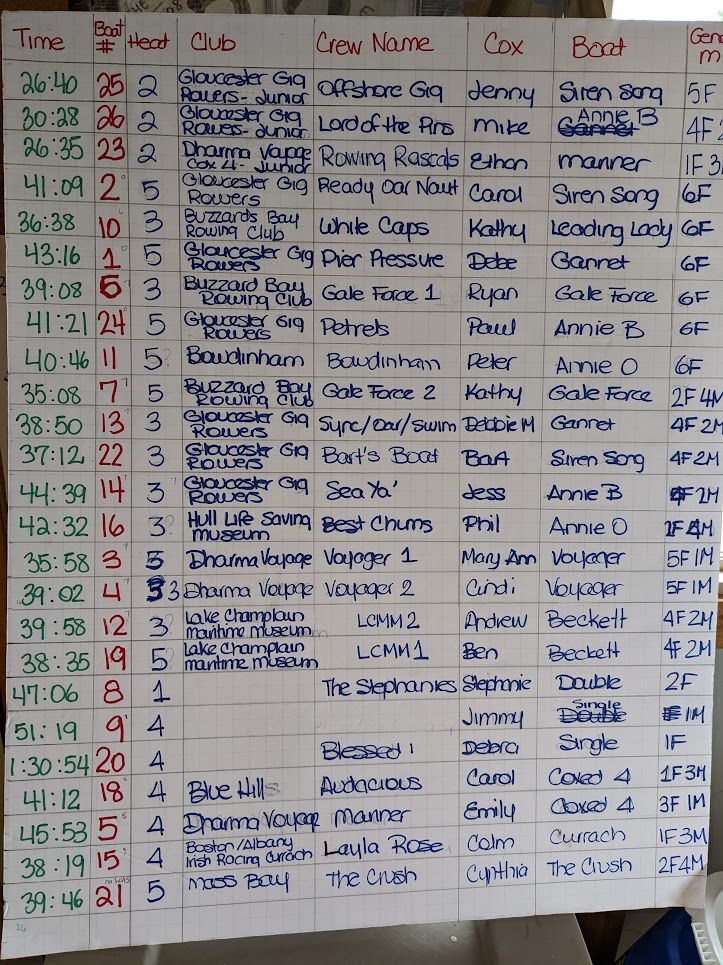 Time Boat # Heat Club Crew Name Cox Boat Gen m
26:40 25 2 Gloucester Gig Rowers - Junior Offshore Gig Jenny Siren Song 5F
30:28 26 2 Gloucester Gig Rowers - Junior Lord of the Pins Mike Annie B 4F 2
26:35 23 2 Dharma Voyage Cox 4 - Junior Rowing Rascals Ethan manner 1F 3
41:09 2 5 Gloucester Gig Rowers Ready Oar Naut Carol Siren Song 6F
36:38 10 3 Buzzards Bay Rowing Club White Caps Kathy Leading Lady 6F
43:16 1 5 Gloucester Gig Rowers Pier Pressure Debe Gannet 6F
39:08 6 3 Buzzard Bay Rowing Club Gale Force 1 Ryan Gale Force 6F
41:21 24 5 Gloucester Gig Rowers Petrels Paul Annie B 6F
40:46 11 5? Bowdinham Bowdinham Peter Annie O 6F
35:08 7 5 Buzzard Bay Rowing Club Gale Force 2 Kathy Gale Force 2F 4M
38:50 13 3 Gloucester Gig Rowers Sync/Oar/Swim Debbie M Gannet 4F 2M
37:12 22 3 Gloucester Gig Rowers Bart's Boat Bart Siren Song 4F 2M
44:39 14 3 Gloucester Gig Rowers Sea Ya' Jess Annie B 4F 2M
42:32 16 3? Hull Life Saving museum Best Chums Phil Annie O 2F 4M
35:58 3 5 Dharma Voyage Voyager 1 Mary Ann Voyager 5F 1M
39:02 4 3 Dharma Voyage Voyager 2 Cindi Voyager 5F 1M
39:58 12 3? Lake Champlain maritime museum LCMM 2 Andrew Beckett 4F 2M
38:35 19 5? Lake Champlain maritime museum LCMM 1 Ben Beckett 4F 2M
47:06 8 1 The Stephanies Stephanie Double 2F
51:19 9 4 Jimmy Single 1M
1:30:54 20 4 Blessed 1 Debra Single 1F
41:12 18 4 Blue Hills Audacious Carol Coxed 4 1F 3M
45:53 5 4 Dharma Voyage manner Emily Coxed 4 3F 1M
38:19 15 4 Boston/Albany Irish Racing Currach Layla Rose Colm Currach 1F 3M
39:46 21 5 Mass Bay The Crush Cynthia The Crush 2F 4M
26